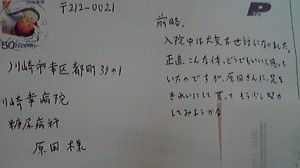 〒212-0021
川崎市幸区都町39の1
川崎幸病院
糖尿病科
原田様
80
NIPPON
前略、
入院中は大変お世話になりました。
正直、こんな体、どうでもいいと思って
いたのですが、原田さんに、足を
きれいにして貰ってもう少し努力
してみようかな
P